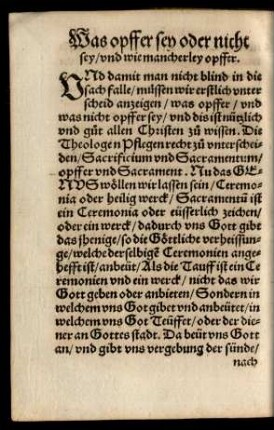 Was opffer sey oder nicht
sey/vnd wie mancherley opffer.
VNd damit man nicht blind in die
sach falle/ müssen wir erstlich vnter
scheid anzeigen/ was opffer/ vnd
was nicht opffer sey/ vnd dis ist nützlich
vnd güt allen Christen zů wissen. Die
Theologen Pflegen recht zů vnterschei-
den/ Sacrificium vnd Sacramentum/
opffer vnd Sacrament. Nu das GE-
NVS wöllen wir lassen sein/ Ceremo-
nia oder heilig werck/ Sacramentū ist
ein Ceremonia oder eüsserlich zeichen/
oder ein werck/ dadurch vns Gott gibt
das jhenige/ so die Göttliche verheissun-
ge/ welche derselbigē Ceremonien ange-
hefft ist/ anbeüt/ Als die Tauff ist ein Ce
remonien vnd ein werck/ nicht das wir
Gott geben oder anbieten/ Sondern in
welchem vns Got gibet vnd anbeütet/ in
welchem vns Got Teüffet/ oder der die-
ner an Gottes stadt. Da beüt vns Gott
an/ vnd gibt vns vergebung der sünde/
nach